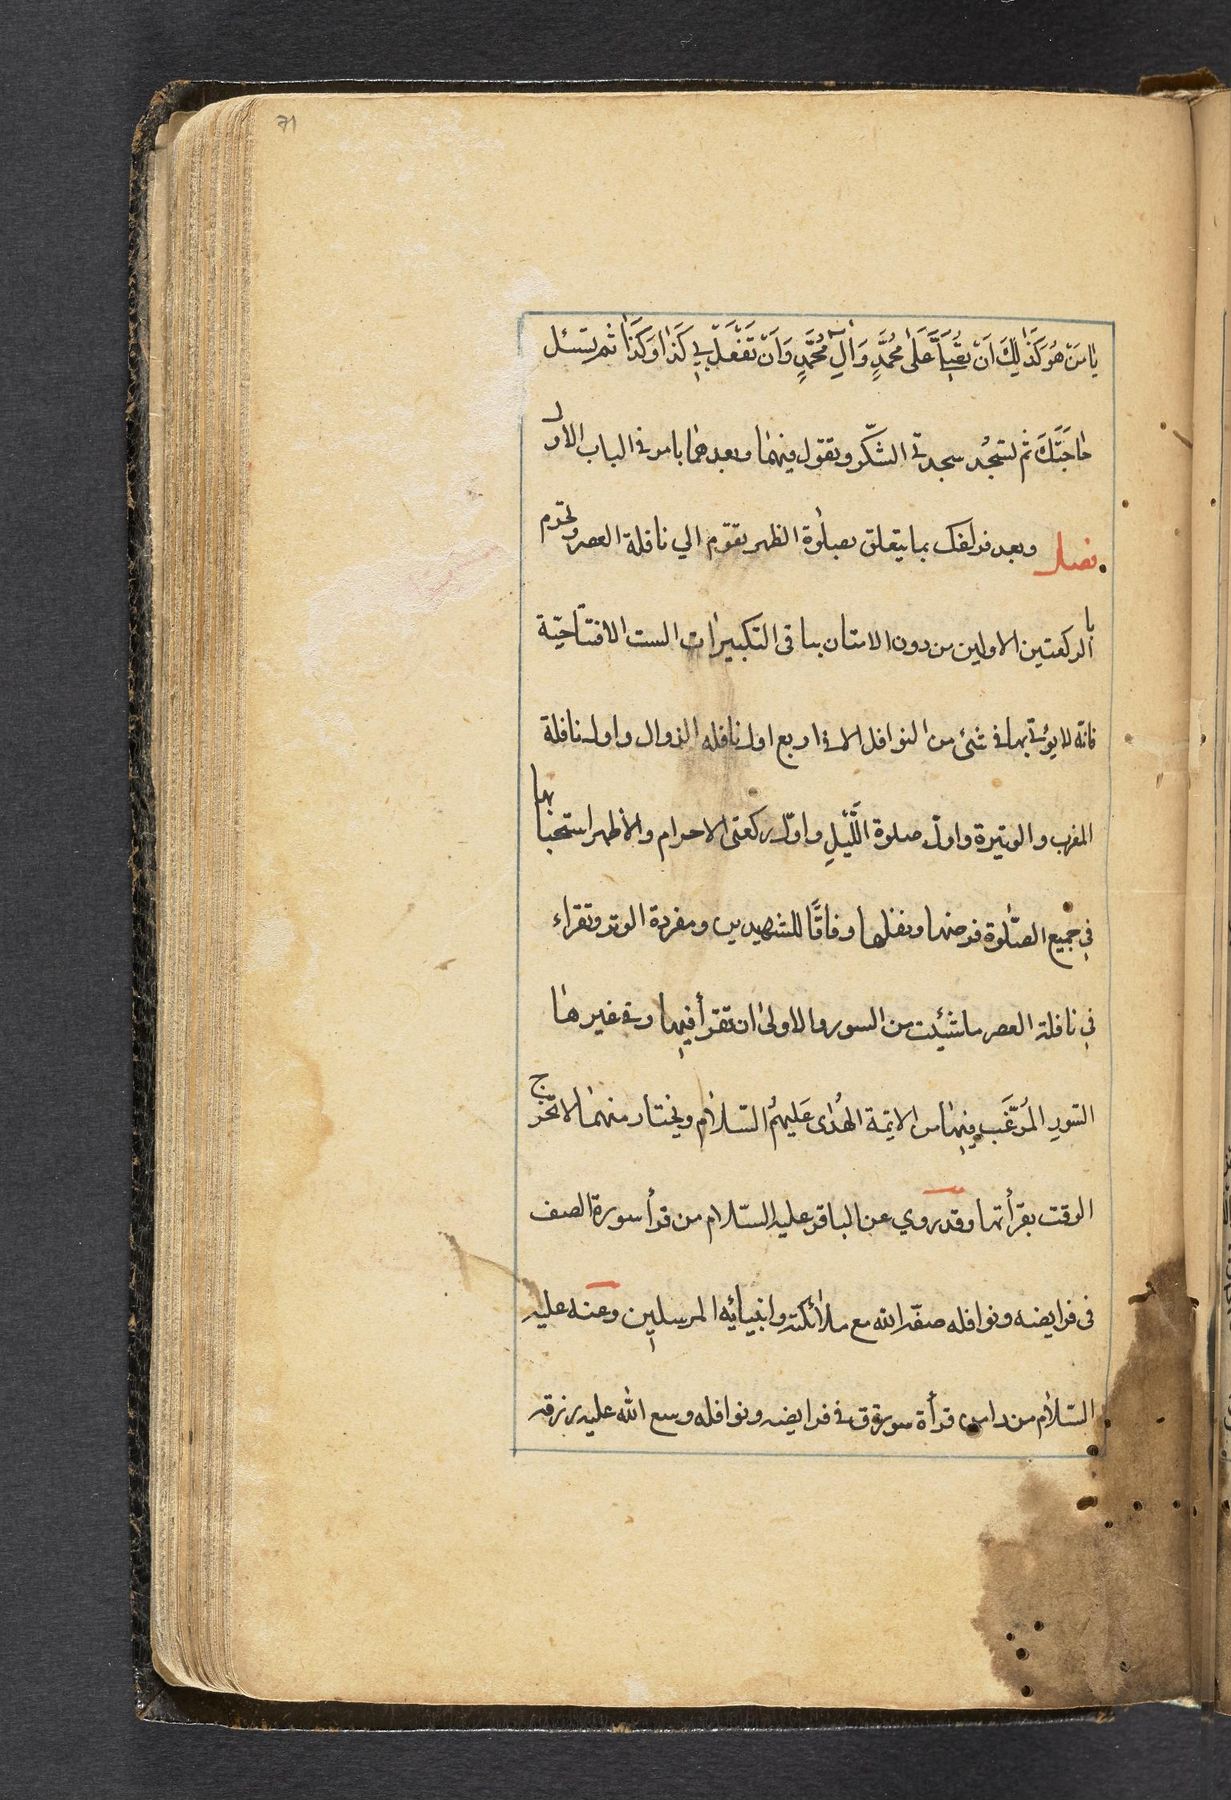 71
يٰا مَنْ هُوَ كَذٰلِكَ اَنْ تُصَلِّيَ عَلٰى مُحَمَّدٍ وَاٰلِ مُحَمَّدٍ وَاَنْ تَفْعَلَ بِي كَذٰا وَكَذٰا ثم تسئل
حٰاجَتَكَ ثم تسجُد سجدتي الشكّر وتقول فيهمٰا وبعدهمٰا ما مر في الباب الاول
فصل وبعد فراغك بما يتعلق بصلٰوة الظهر تقوم الي نافلة العصر وتحرم
بالركعتين الاولين من دون الاتيان بباقي التكبيرٰات الست الافتتاحيّة
فانّه لا يؤتي بها في شئ من النوافل الا في اربع اول نافله الزوال واول نافلة
المغرب والوتيرة واولّ صلوة اللَّيْلِ واولّ ركعتي الاحرام والأظهر استحبابها
في جميع الصَّلٰوة فرضها ونفلها وفاقًا للشهيدين ومفردة الوتر وتقراء
في نافلة العصر ما شئيت من السور والاولىٰ ان تقرأ فيها وفي غيرهٰا
السّورِ المُرَغَّب فيهٰا من الايمّة الهُدٰى عَليهمُ السّلاٰم ويختار منهمٰا لا تخرج
الوقت بقرأتها وقد روي عن الباقر عليه السّلاٰم من قرأ سورة الصف
في فرايضه ونوافله صفّه الله مع ملاٰئكته وانبيائه المرسلين وعنه عليه
السّلاٰم من دامن قرأة سورة ق في فرايضه ونوافله وسع اللّه عليه رزقه